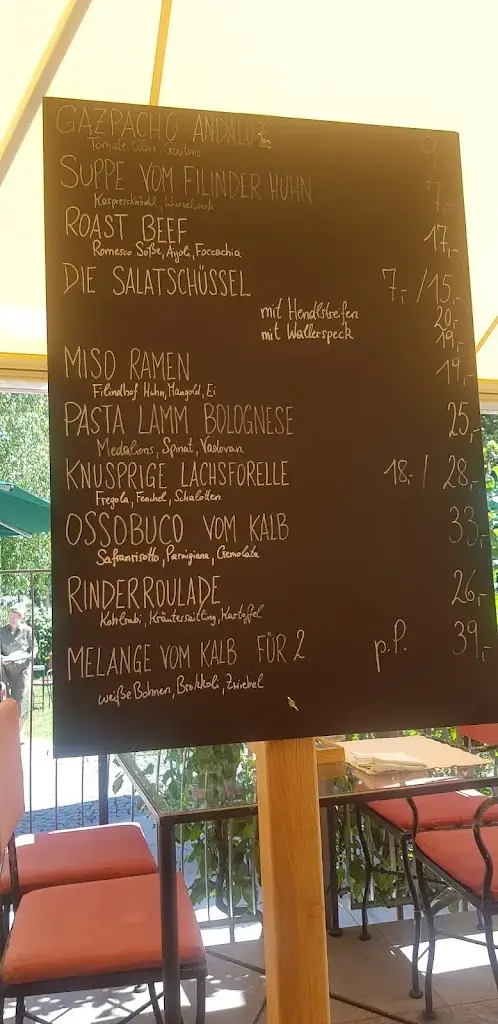 GAZPACHO ANDALUZ 9,-
Tomate, Gurke, Croutons
SUPPE VOM FILINDER HUHN 7,-
Kaspressknödel, Wurzelwerk
ROAST BEEF 17,-
Romesco Soße, Ajoli, Foccachia
DIE SALATSCHÜSSEL 7,- / 15,-
mit Hendlstreifen 20,-
mit Wallerspeck 19,-
MISO RAMEN 19,-
Filindhof Huhn, Mangold, Ei
PASTA LAMM BOLOGNESE 25,-
Medalions, Spinat, Vadovan
KNUSPRIGE LACHSFORELLE 18,- / 28,-
Fregola, Fenchel, Schalotten
OSSOBUCO VOM KALB 33,-
Safranrisotto, Parmigiana, Gremolata
RINDERROULADE 26,-
Kohlrabi, Kräutersaitling, Kartoffel
MELANGE VOM KALB FÜR 2 p.P. 39,-
weiße Bohnen, Brokkoli, Zwiebel